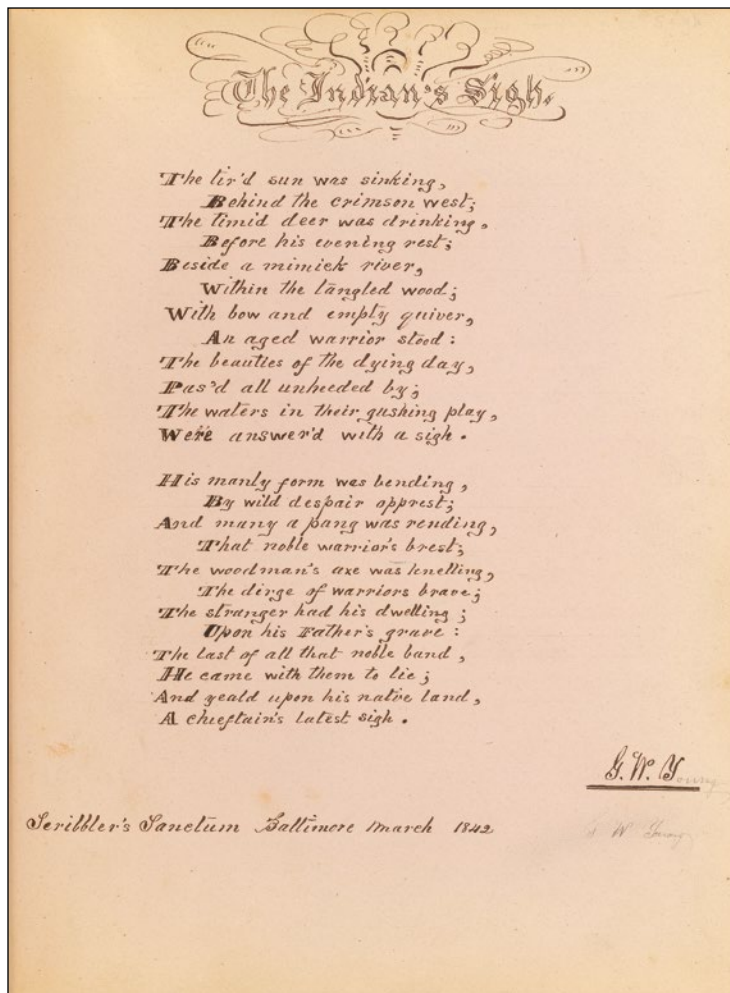 The Indian's Sigh.
The tir'd sun was sinking,
Behind the crimson west;
The timid deer was drinking,
Before his evening rest;
Beside a mimick river,
Within the tangled wood;
With bow and empty quiver,
An aged warrior stood:
The beauties of the dying day,
Pas'd all unheeded by;
The waters in their gushing play,
Were answer'd with a sigh.
His manly form was bending,
By wild despair opprest;
And many a pang was rending,
That noble warrior's brest;
The woodman's axe was knelling,
The dirge of warriors brave;
The stranger had his dwelling;
Upon his Father's grave:
The last of all that noble band,
He came with them to lie;
And yeald upon his native land,
A chieftain's latest sigh.
G. W. Young
Scribbler's Sanctum Baltimore March 1842
W Young